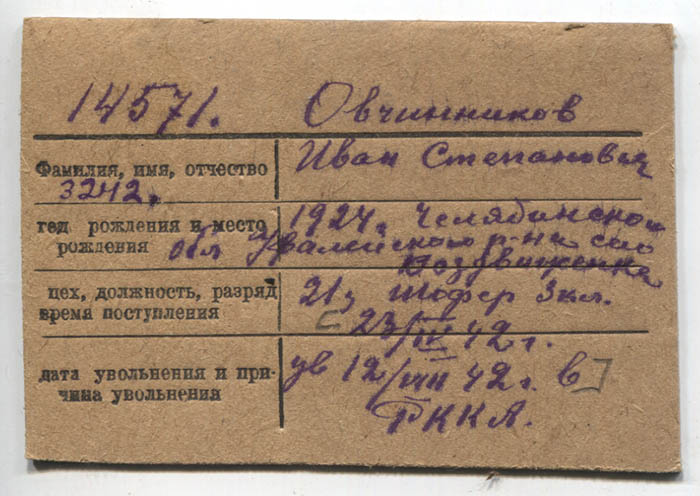 14571. Овчинников
Фамилия, имя, отчество Иван Степанович
3242.
год рождения и место 1924г. Челябинской
рождения обл Увалейского р-на село
Воздвиженка
цех, должность, разряд 21ц шофер 3кл.
время поступления с 23/IV 42 г.
дата увольнения и при- ув 12/VIII 42 г. в
чина увольнения РККА.